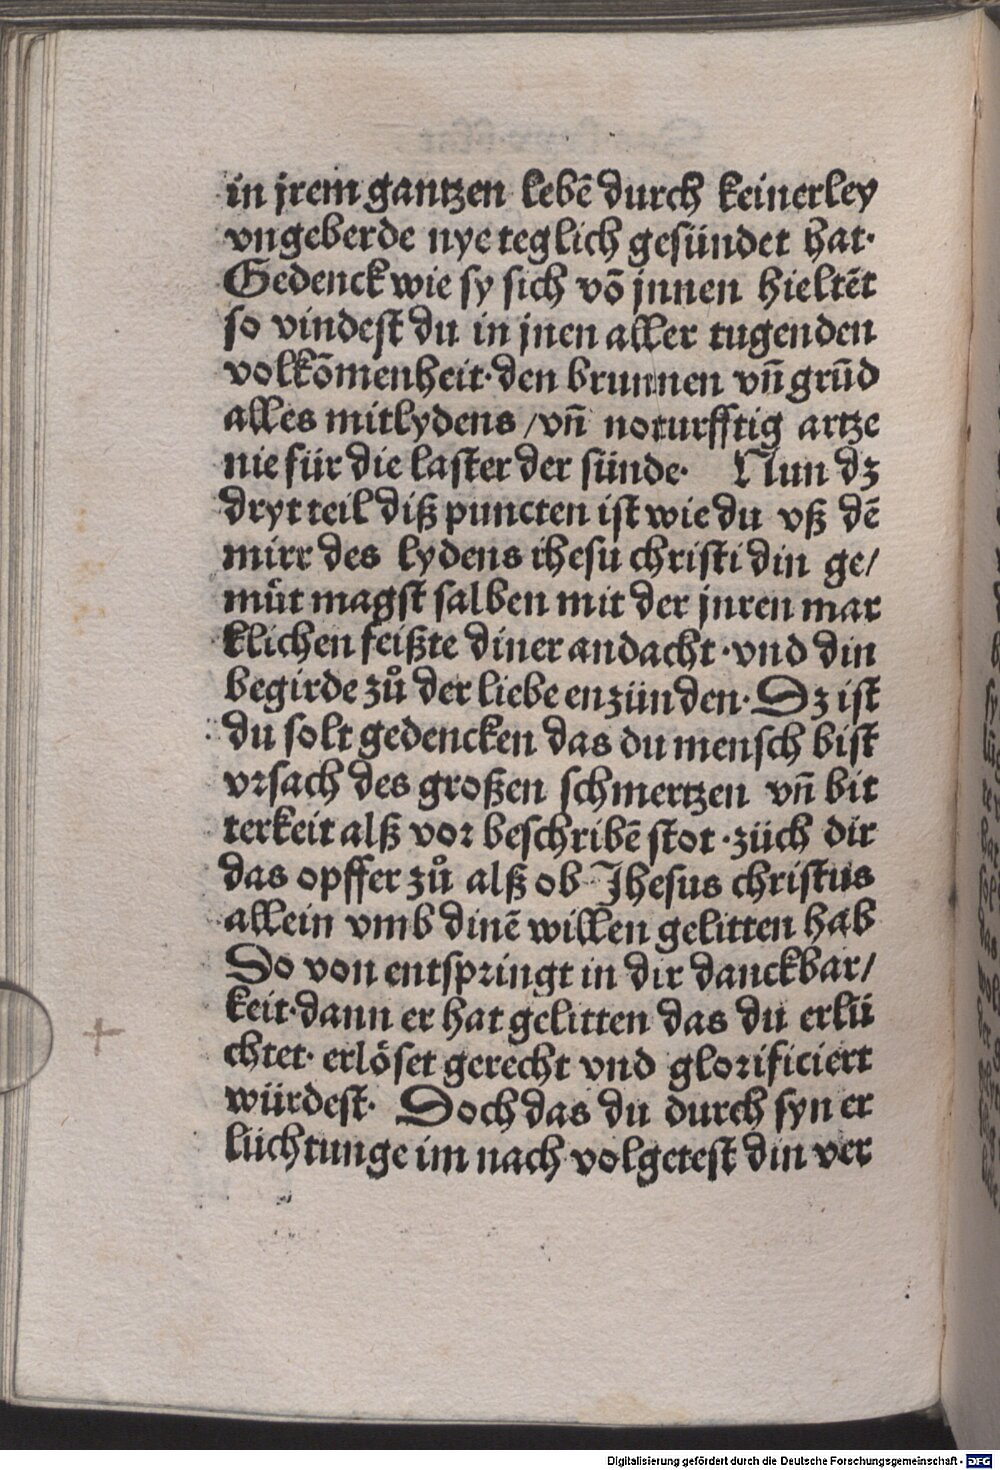 in jrem gantzen lebē durch keinerley
vngeberde nye teglich gesündet hat·
Gedenck wie sy sich vō jnnen hieltēt
so vindest du in jnen aller tugenden
volkōmenheit· den brunnen vn̄ grūd
alles mitlydens / vn̄ noturfftig artze
nie für die laster der sünde· Nun dz
dryt teil diß puncten ist wie du vß dē
mirr des lydens ihesu christi din ge/
muͤt magst salben mit der jnren mar
klichen feißte diner andacht · vnd din
begirde zuͦ der liebe enzünden· Dz ist
du solt gedencken das du mensch bist
vrsach des großen schmertzen vn̄ bit
terkeit alß vor beschribē stot · züch dir
das opffer zuͦ alß ob Jhesus christus
allein vmb dinē willen gelitten hab
Do von entspringt in dir danckbar/
keit· dann er hat gelitten das du erlü
chtet· erlöset gerecht vnd glorificiert
würdest· Doch das du durch syn er
lüchtunge im nach volgetest din ver
Digitalisierung gefördert durch die Deutsche Forschungsgemeinschaft - DFG